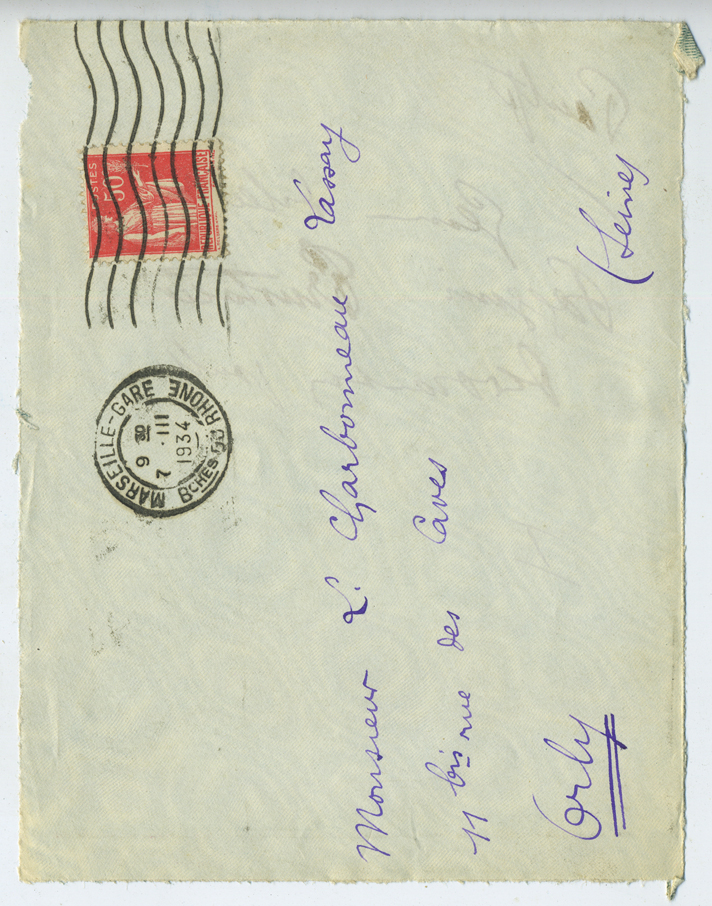 POSTES
50
RÉPUBLIQUE FRANÇAISE
MARSEILLE-GARE
9 30
7 .III
1934
BCHES DU RHONE
Monsieur L. Charbonneau Lassay
11 bis rue des Caves
Orly
(Seine)